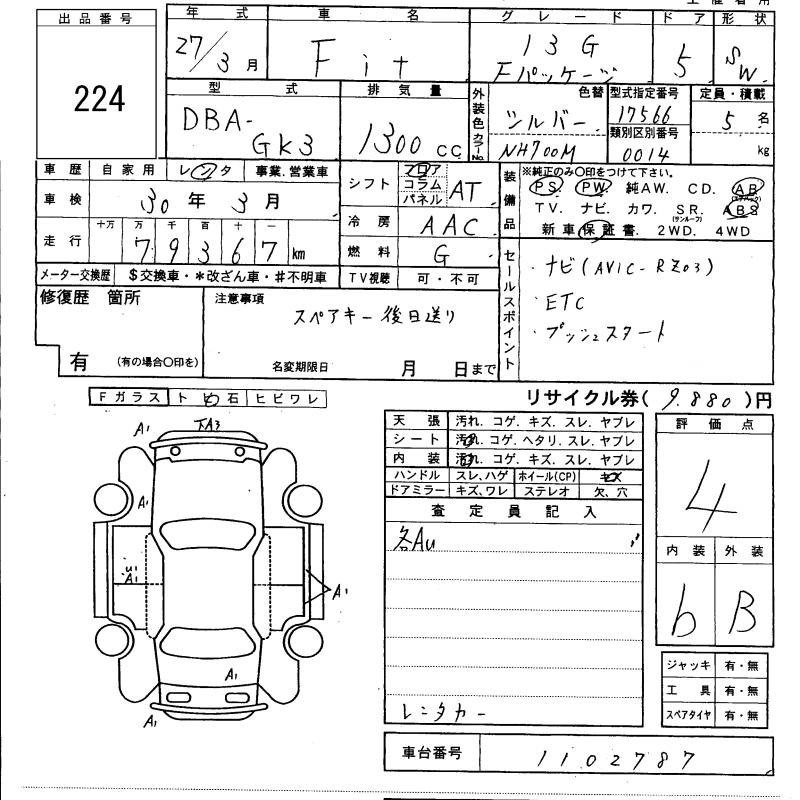 出品番号
224
年式 車名 グレード ドア 形状
27/3月 Fit 13G Fパッケージ 5 SW
型式 排気量 外装色 色替 型式指定番号 定員・積載
DBA-GK3 1300CC シルバー 17566 5名
カラーNo NH700M 類別区別番号 0014 kg
車歴 自家用 レンタ 事業.営業車
車検 30年3月
走行 十万 万 千 百 十 一
79367km
メーター交換歴 $交換車・*改ざん車・#不明車
シフト フロア コラム パネル AT
冷房 AAC
燃料 G
TV視聴 可・不可
装備品 ※純正のみ〇印をつけて下さい。
PS PW 純AW. CD. AB (エアバック)
TV. ナビ. カワ. SR. (サンルーフ) ABS
新車保証書. 2WD. 4WD
セールスポイント
・ナビ(AVIC-RZ03)
・ETC
・プッシュスタート
修復歴 箇所
有 (有の場合〇印を)
注意事項
スペアキー後日送り
名変期限日 月 日まで
リサイクル券( 9.880 )円
Fガラス トビ石 ヒビワレ
A1 下A3
A1
U1
A1
A1
A1
A1
天張 汚れ. コゲ. キズ. スレ. ヤブレ
シート 汚れ. コゲ. ヘタリ. スレ. ヤブレ
内装 汚れ. コゲ. キズ. スレ. ヤブレ
ハンドル スレ、ハゲ ホイール(CP) キズ
ドアミラー キズ、ワレ ステレオ 欠、穴
査定員記入
各AU
レンタカー
評価点
4
内装 外装
b B
ジャッキ 有・無
工具 有・無
スペアタイヤ 有・無
車台番号 1102787